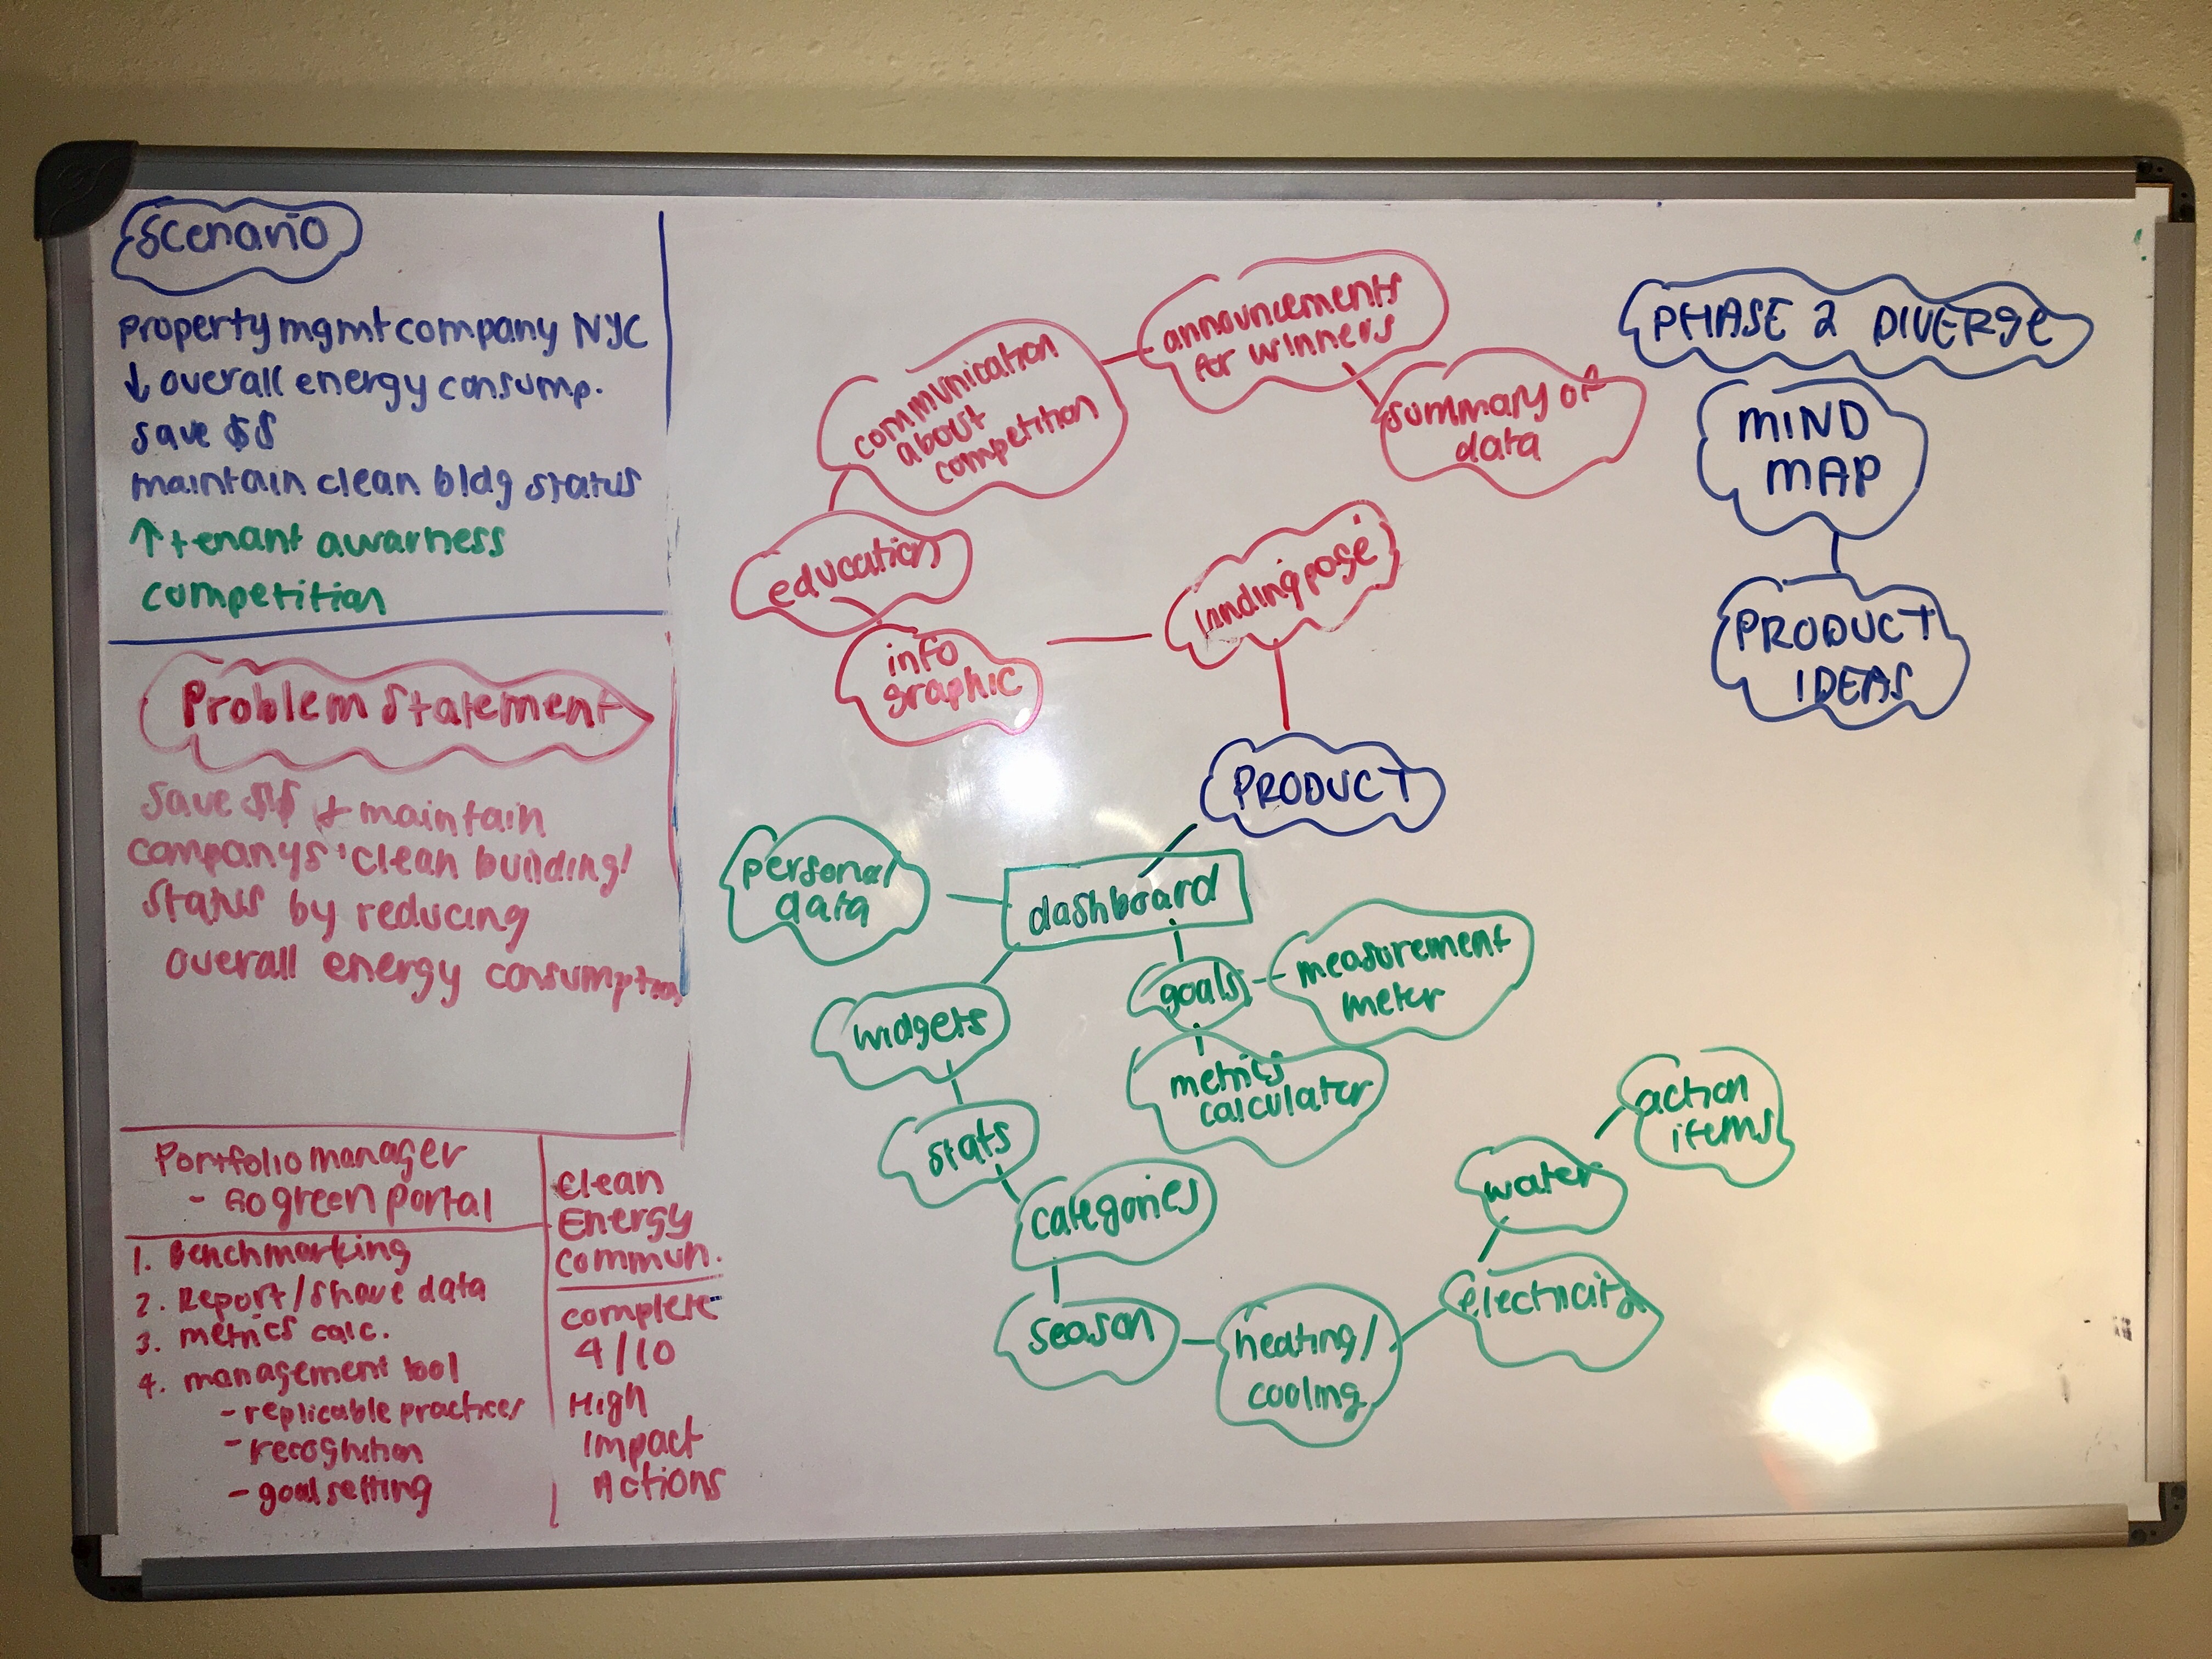 Scenario
property mgmt company NYC
↓ overall energy consump.
save $$
maintain clean bldg status
↑ tenant awarness
competition
Problem Statement
Save $$ + maintain
companys 'clean building'
status by reducing
overall energy consumption
Portfolio manager
- Go green portal
1. Benchmarking
2. Report/share data
3. metrics calc.
4. management tool
- replicable practices
- recognition
- goal setting
Clean
Energy
Commun.
complete
4/10
High
Impact
Actions
announcements
for winners
communication
about
competition
summary of
data
education
info
graphic
landing page
PRODUCT
personal
data
dashboard
goals
measurement
meter
widgets
metrics
calculator
stats
categories
season
heating/
cooling
electricity
water
action
items
PHASE 2 DIVERGE
MIND
MAP
PRODUCT
IDEAS